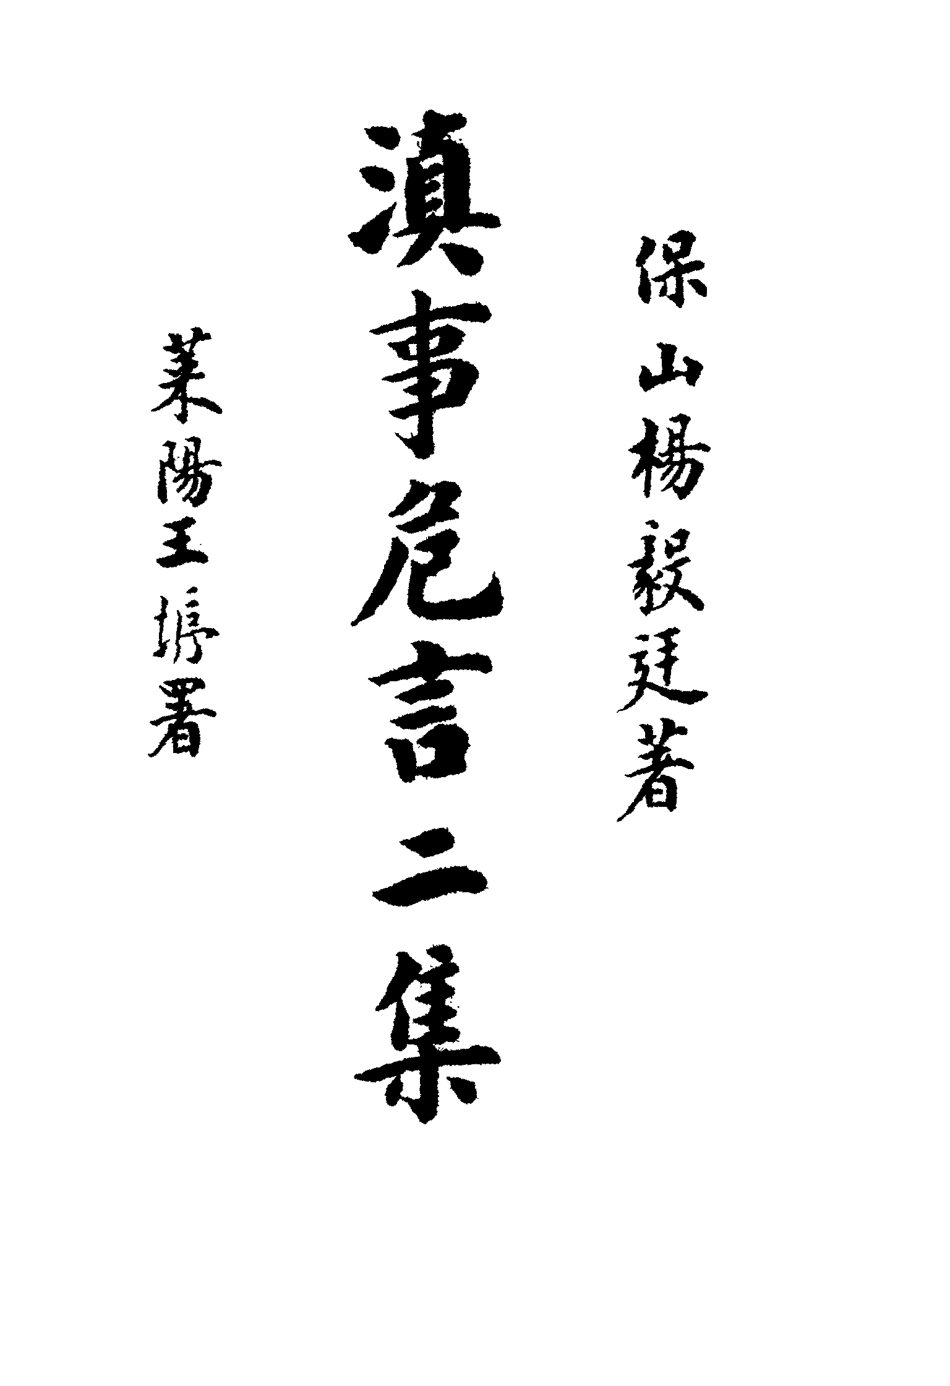 保山楊毅廷著
滇事危言二集
萊陽王垿署